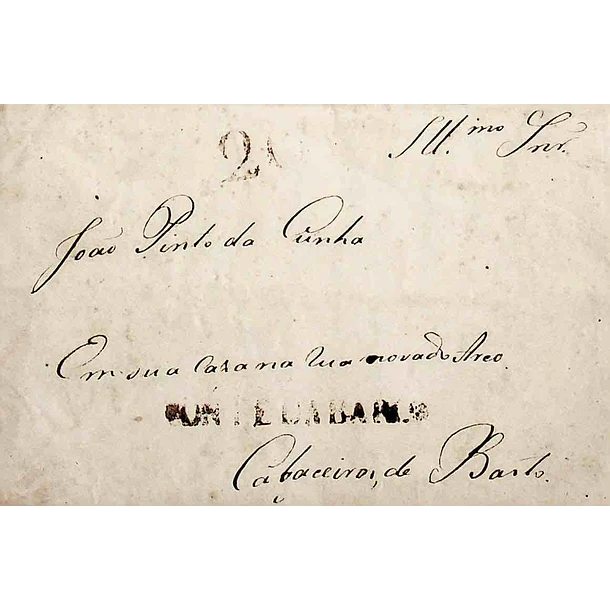 Ill.mo Snr.
João Pinto da Cunha
Em sua Caza na Rua nova do Arco
PONTE DA BARCA
Cabaceiros, de Basto.